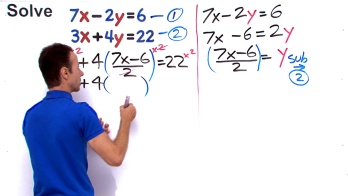 Solve
7x-2y=6 - ①
3x+4y=22 - ②
+ 4(7x-6/2)=22
×2 ×2
+ 4(
)
7x-2y=6
7x-6=2y
(7x-6/2)=y
sub → ②